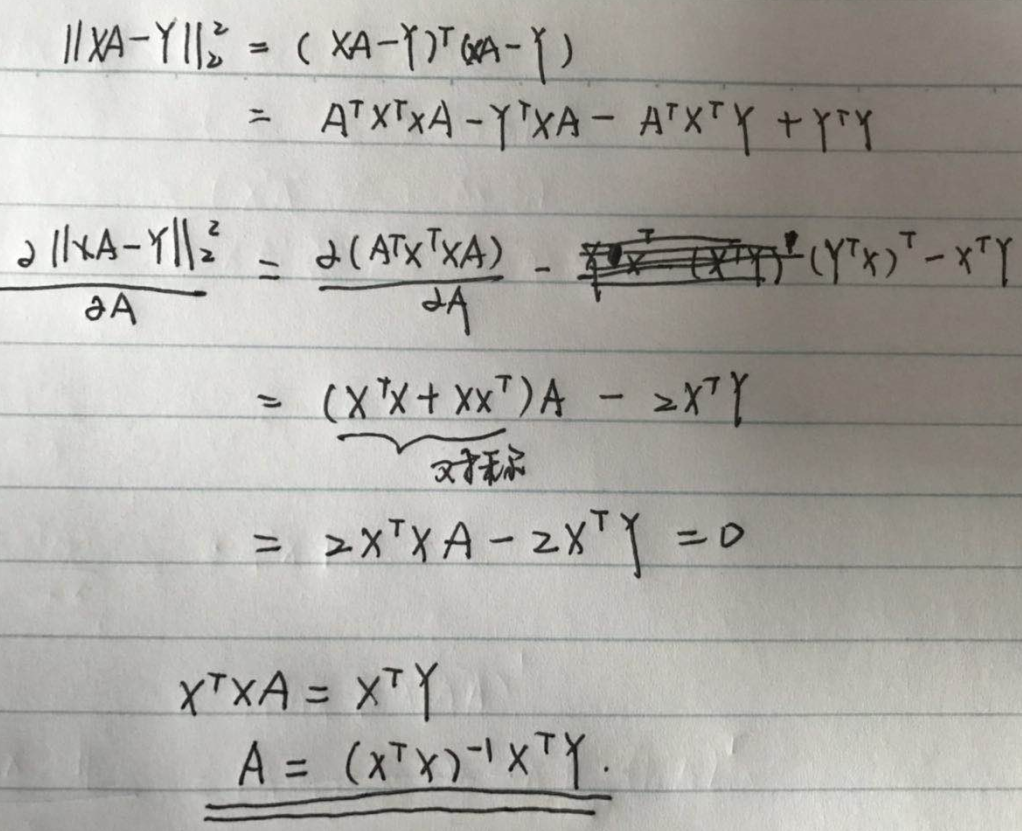 ||XA-Y||₂² = (XA-Y)ᵀ(XA-Y)
= AᵀXᵀXA - YᵀXA - AᵀXᵀY + YᵀY
∂||XA-Y||₂² / ∂A = ∂(AᵀXᵀXA) / ∂A - (YᵀX)ᵀ - XᵀY
= (XᵀX + XXᵀ)A - 2XᵀY
对称
= 2XᵀXA - 2XᵀY = 0
XᵀXA = XᵀY
A = (XᵀX)⁻¹XᵀY.